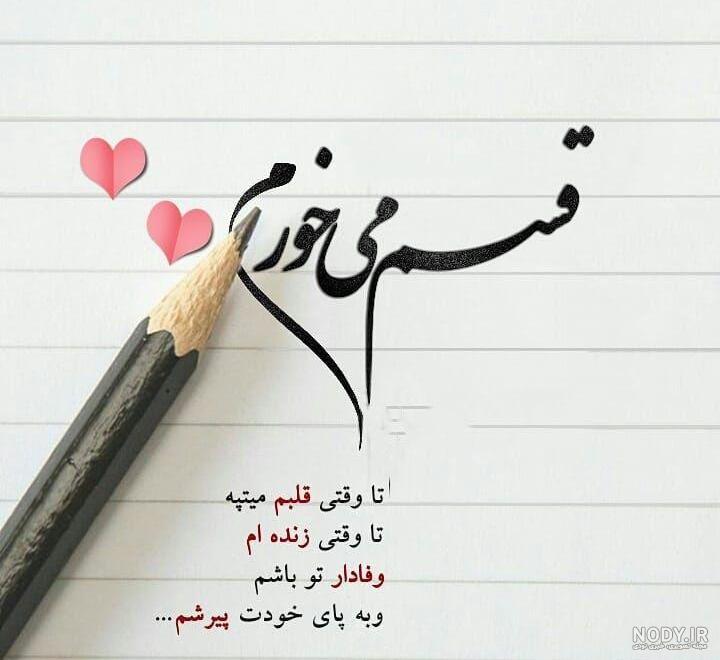 قسم می خورم
تا وقتی قلبم میتپه
تا وقتی زنده ام
وفادار تو باشم
وبه پای خودت پیرشم...
NODY.IR
مجله تصویری، خبری نودی